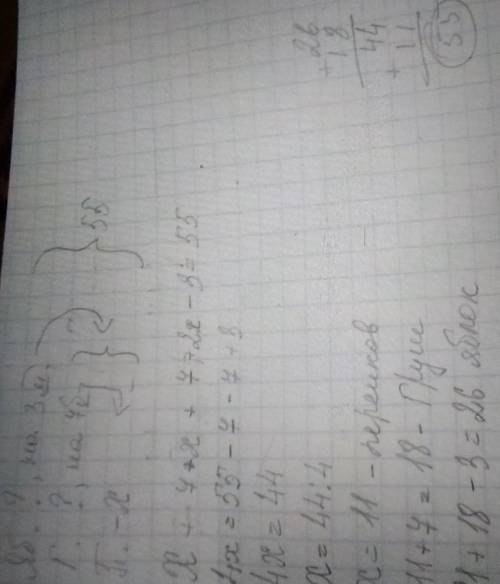 Яб. - ?, на 3 м.
Г. - ?, на 7 б. } 55
П. - x
x + 7 + x + 7 + 2x - 3 = 55
4x = 55 - 7 - 7 + 3
4x = 44
x = 44 : 4
x = 11 - персиков
11 + 7 = 18 - Груш
11 + 18 - 3 = 26 яблок
26
+ 18
44
+ 11
55